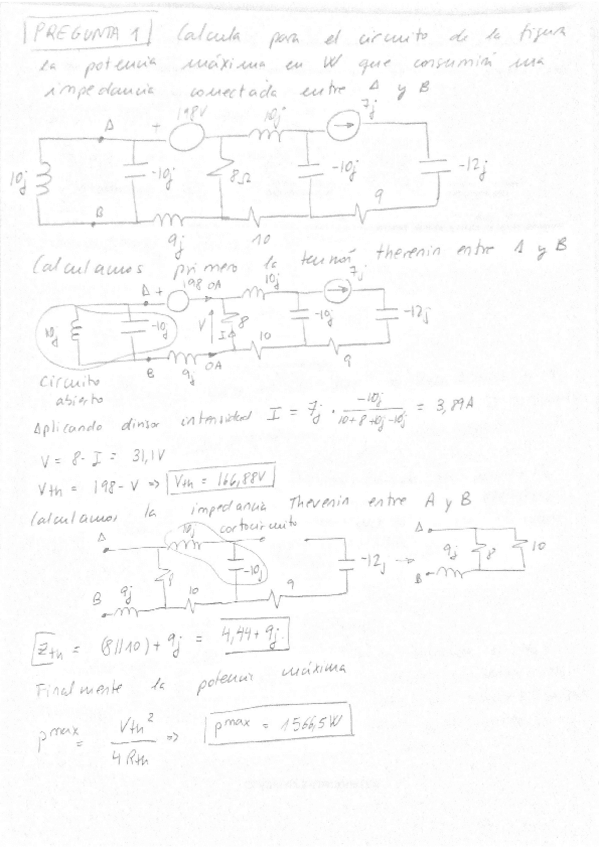 PREGUNTA 1 Calcula para el circuito de la figura
la potencia máxima en W que consumirá una
impedancia conectada entre A y B
A + 198V 10j 7j
10j -10j 8Ω -10j -12j
B 9j 10 9
Calculamos primero la tensión thevenin entre A y B
A + 198 0A 10j 7j
10j -10j V I 8 -10j -12j
B 9j 0A 10 9
circuito
abierto
Aplicando divisor intensidad I = 7j · -10j / 10+8+10j-10j = 3,89A
V = 8·I = 31,1V
Vth = 198-V => Vth = 166,88V
Calculamos la impedancia Thevenin entre A y B
A 10j cortocircuito
8 -10j -12j
B 9j 10 9
A 9j 8 10
B
Zth = (8//10) + 9j = 4,44+9j
Finalmente la potencia máxima
Pmax = Vth² / 4Rth => Pmax = 1566,5W